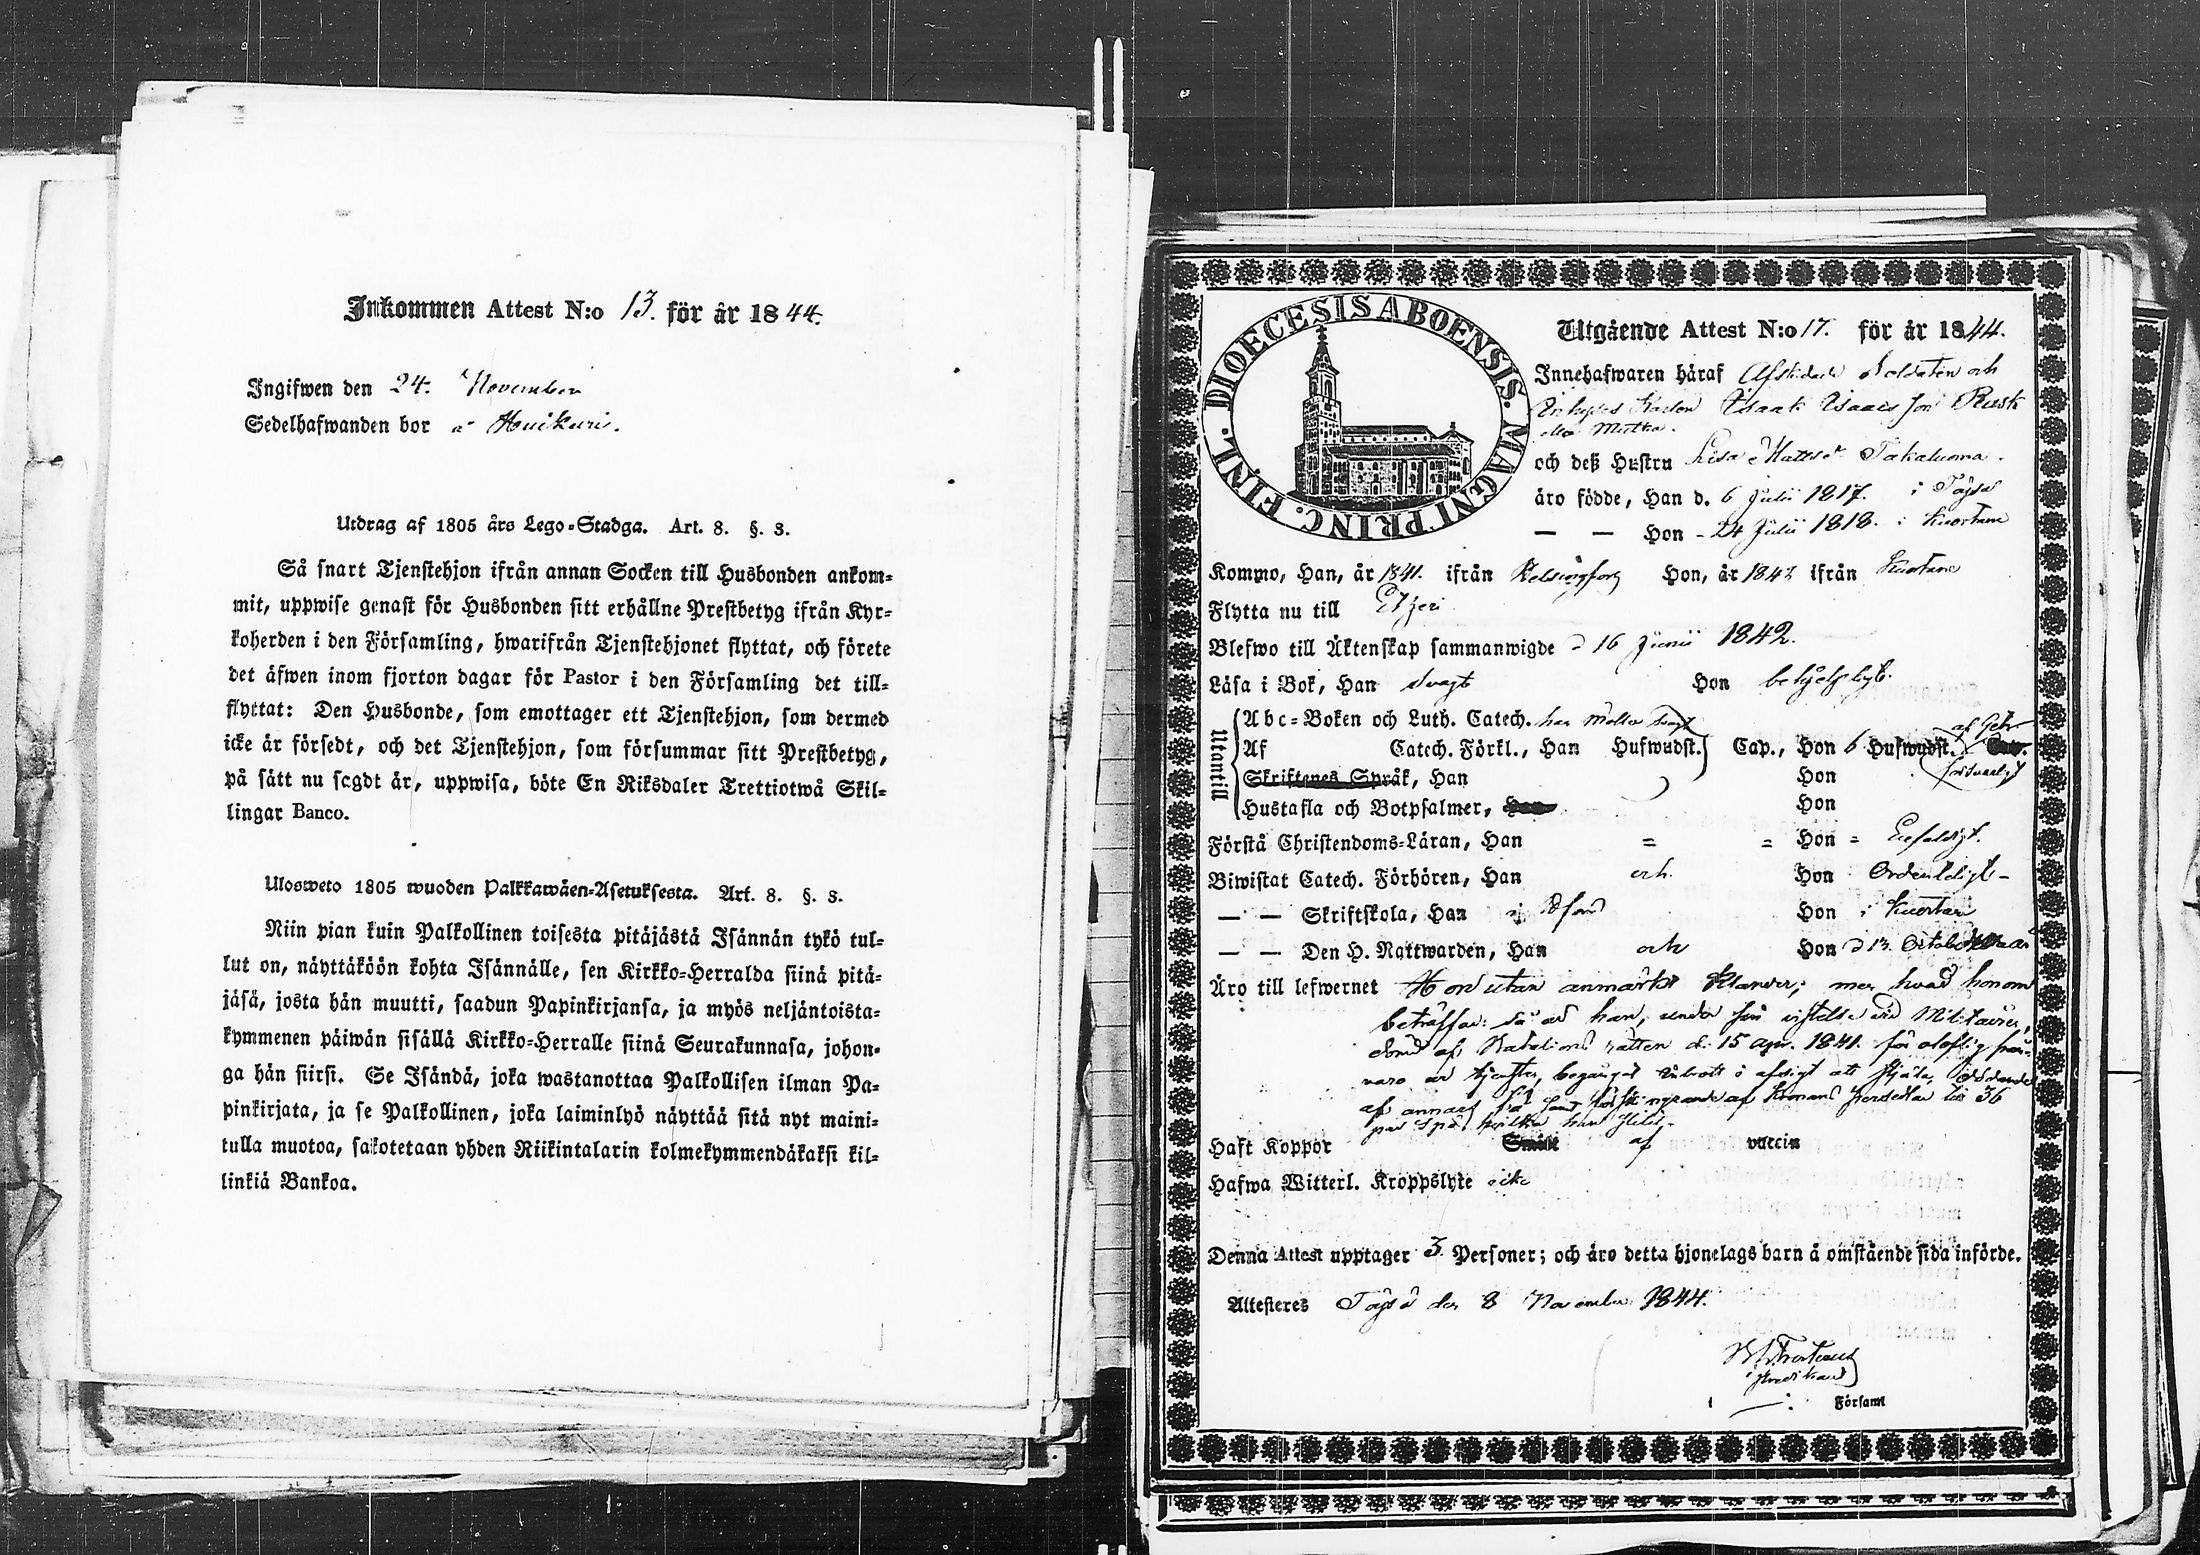 Inkommen Attest N:o 13. för år 1844.
Ingifwen den 24. November
Sedelhafwanden bor å Honikuri.
Utdrag af 1805 års Lego-Stadga. Art. 8. §. 3.
Så snart Tjenstehjon ifrån annan Socken till Husbonden ankom-
mit, uppwise genast för Husbonden sitt erhållne Prestbetyg ifrån Kyr-
koherden i den Församling, hwarifrån Tjenstehjonet flyttat, och förete
det äfwen inom fjorton dagar för Pastor i den Församling det till-
flyttat: Den Husbonde, som emottager ett Tjenstehjon, som dermed
icke är försedt, och det Tjenstehjon, som försummar sitt Prestbetyg,
på sätt nu sagdt är, uppwisa, böte En Riksdaler Trettiotwå Skil-
lingar Banco.
Ulosweto 1805 wuoden Palkkawäen-Asetuksesta. Art. 8. §. 3.
Niin pian kuin Palkollinen toisesta pitäjästä Isännän tykö tul-
lut on, näyttäköön kohta Isännälle, sen Kirkko-Herralda siinä pitä-
jäsä, josta hän muutti, saadun Papinkirjansa, ja myös neljäntoista-
kymmenen päiwän sisällä Kirkko-Herralle siinä Seurakunnasa, johon-
ga hän siirsi. Se Isändä, joka wastanottaa Palkollisen ilman Pa-
pinkirjata, ja se Palkollinen, joka laiminlyö näyttää sitä nyt maini-
tulla muotoa, sakotetaan yhden Riikintalarin kolmekymmendäkaksi kil-
linkiä Bankoa.
DIOECESIS ABOENSIS. MAGNI PRINC. FINL.
Utgående Attest N:o 17. för år 1844.
Innehafwaren häraf Afskedade Soldaten och
Inhyses Karlen Isaak Isaacs son Rusk
Mutka.
och deß Hustru Lisa Mattsd. Takaluoma.
äro födde, Han d. 6 Julii 1817. i Töysä
— — Hon - 24 Julii 1818. i Kuortane
Kommo, Han, år 1841. ifrån Helsingfors Hon, år 1842 ifrån Kuortane
Flytta nu till Etzeri
Blefwo till Äktenskap sammanwigde d 16 Junii 1842.
Läsa i Bok, Han svagt Hon behjelpligt.
Utantill
Abc-Boken och Luth. Catech. han svagt
Af Catech. Förkl., Han Hufwudst. Cap., Hon 6 Hufwudst. Cap.
Skriftenes Språk, Han Hon försvarligt
Hustafla och Botpsalmer, Han Hon
Förstå Christendoms-Läran, Han = = Hon = Enfaldigt.
Biwistat Catech. Förhören, Han och Hon Ordentligt -
— — Skriftskola, Han Hon i Kuortane
— — Den H. Nattwarden, Han och Hon d 13. October
Äro till lefwernet Hon utan anmärkt klander; men hvad honom
beträffar: så är han, under sin vistelse vid Militairen,
dömd af Batalions rätten d. 15 apr. 1841. för oloflig från-
varo ur tjensten, begånget inbrott i afsigt att stjäla,
af annans
Haft Koppor Små af vaccin
Hafwa Witterl. Kroppslyte icke
Denna Attest upptager 3. Personer; och äro detta hjonelags barn å omstående sida införde.
Attesteres Töysä den 8 November 1844.
Församl